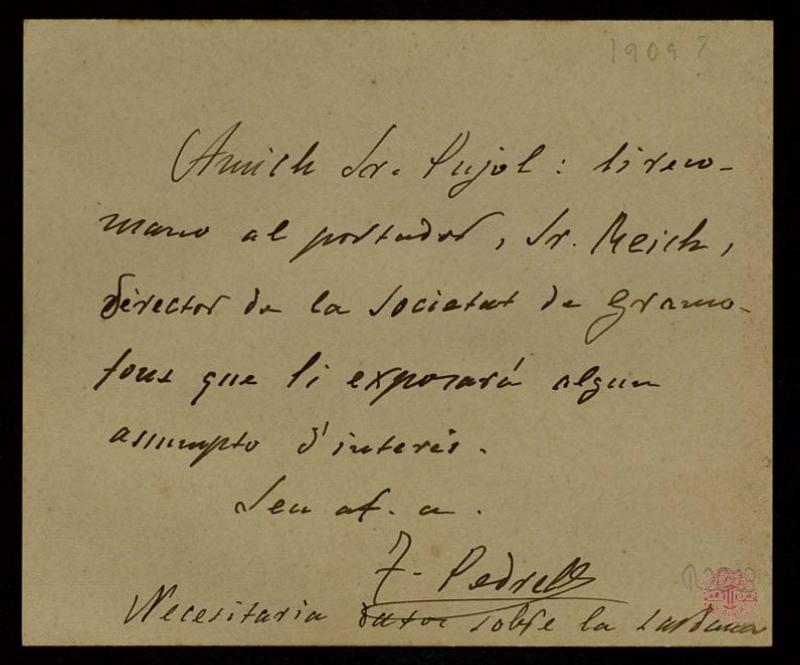 1909?
Amich Sr. Pujol: li reco-
mano al portador, Sr. Reich,
director de la Societat de Gramo-
fons que li exposará algun
assumpto d'interés.
Seu af. a.
F. Pedrell
Necesitaria datos sobre la sardana